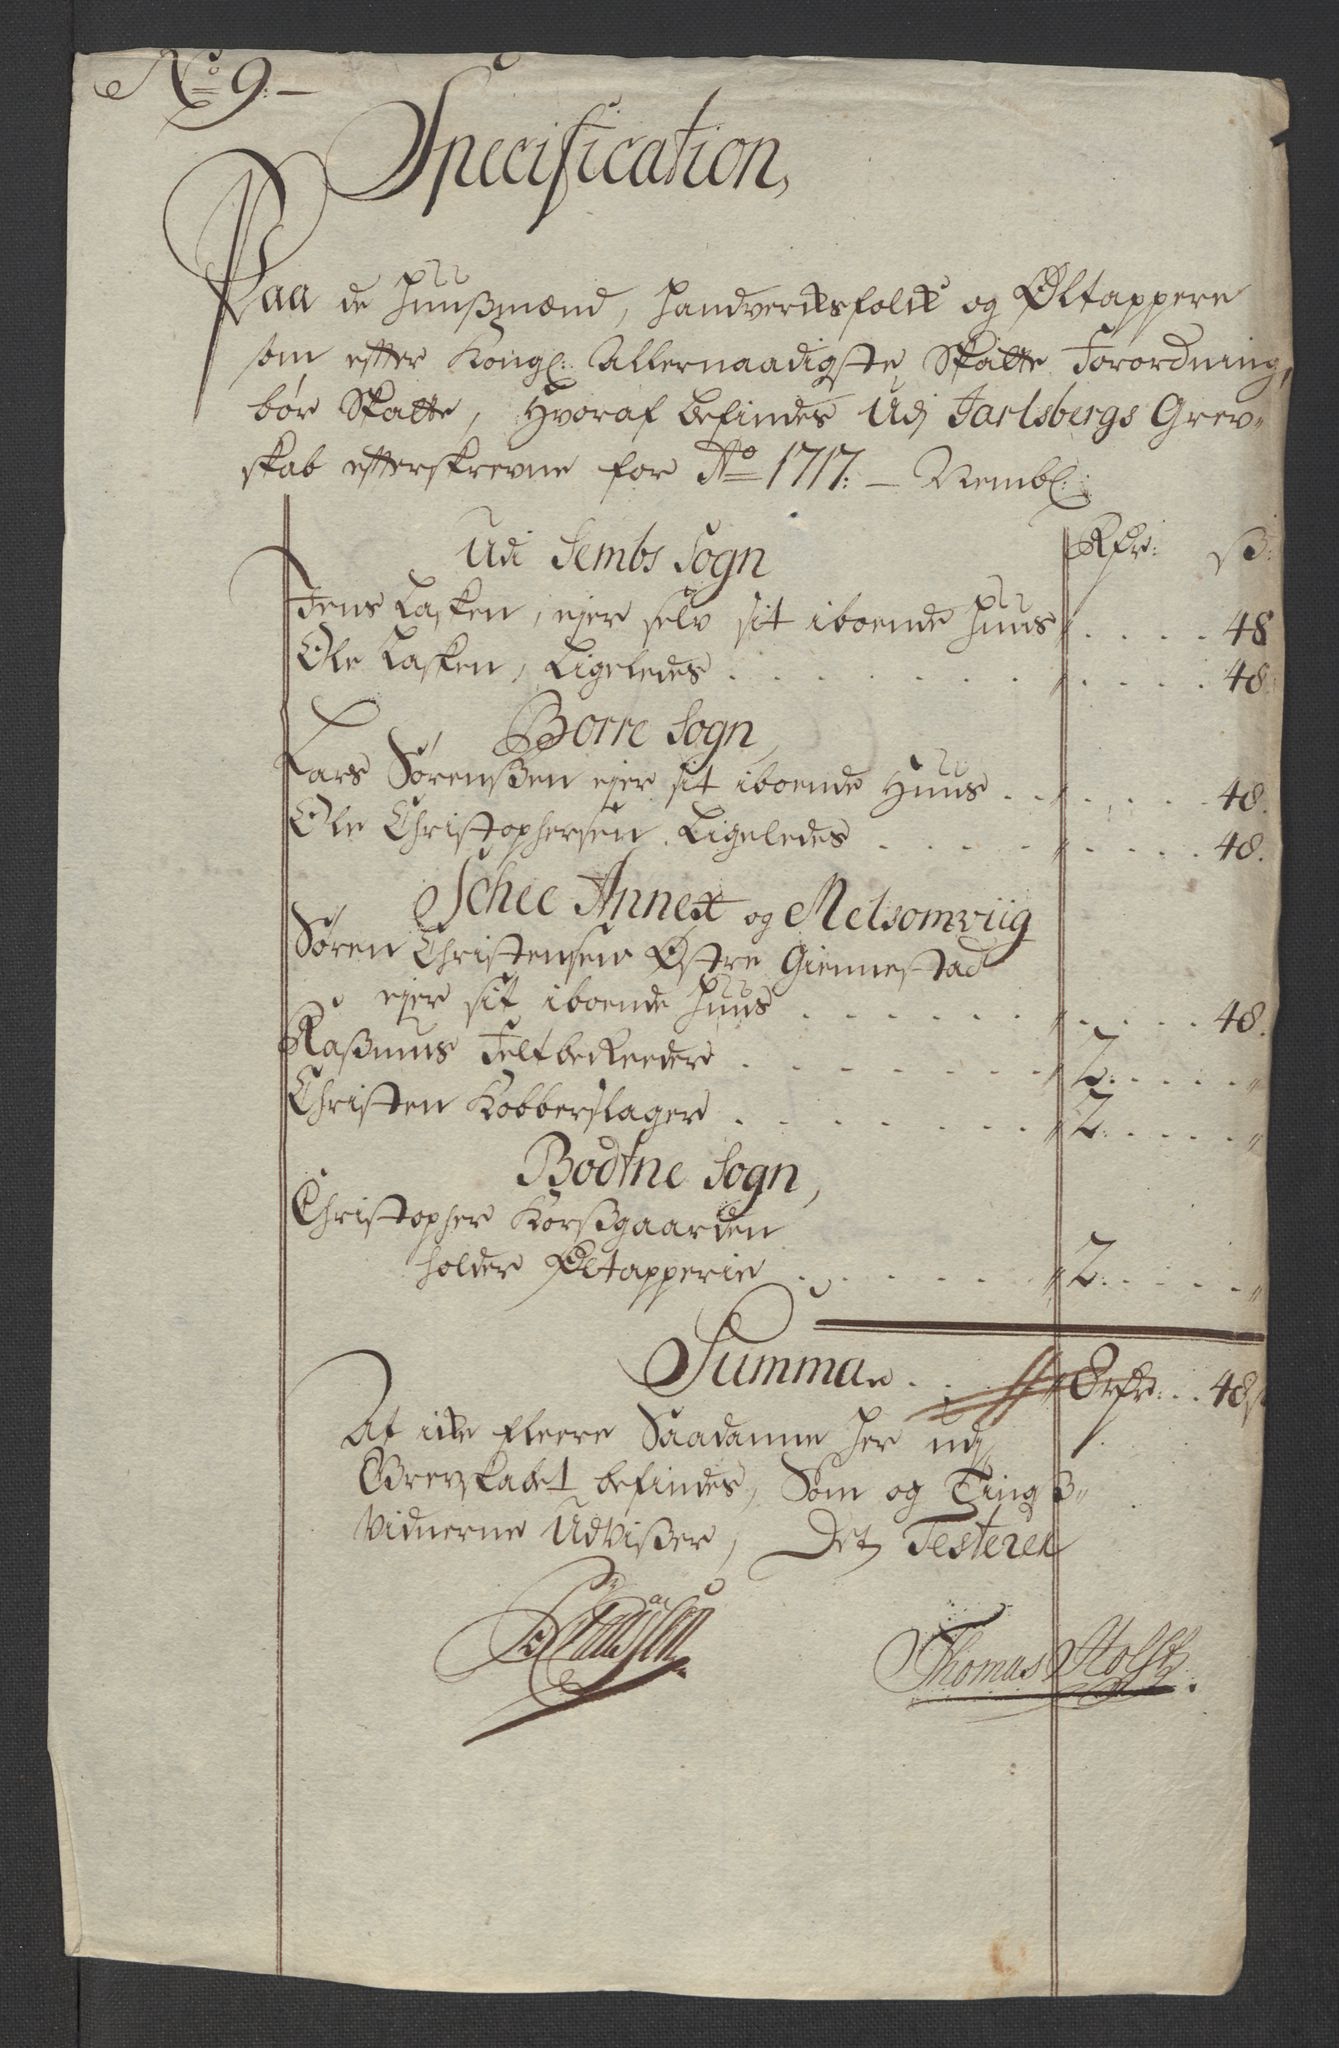 No 9.
Specification,
Paa de Huußmænd, Handverksfolk og Øltappere
som efter Kongl: Allernaadigste Skatte Forordning,
bør Skatte, Hvoraf befindes Udj Jarlsbergs Grev-
skab efterskrevne for Ao 1717: — Nembl:
Udi Sembs Sogn
Rdr: ß:
Jens Lasken, ejer selv sit iboende Huus . . . . 48
Ole Lasken, Ligeledes . . . . 48.
Borre Sogn,
Lars Sørenßen ejer sit iboende Huus . . . . 48.
Ole Christophersen, Ligeledes . . . . 48.
Schee Annex og Melsomviig
Søren Christensen Østre Giennestad
ejer sit iboende Huus . . . . 48.
Raßmus Feltbereeder . . . . 2. . . . "
Christen Kobberslager . . . . 2. . . . "
Bodtne Sogn,
Christopher Korßgaarden
holder Øltapperie . . . . 2. . . . "
Summa . . 8rdr: . . 48ß
At icke fleere Saadanne her udj
Grevskabet befindes, Som og Tingß-
vidnerne Udvißer, Det Testerer
Thomas Holst